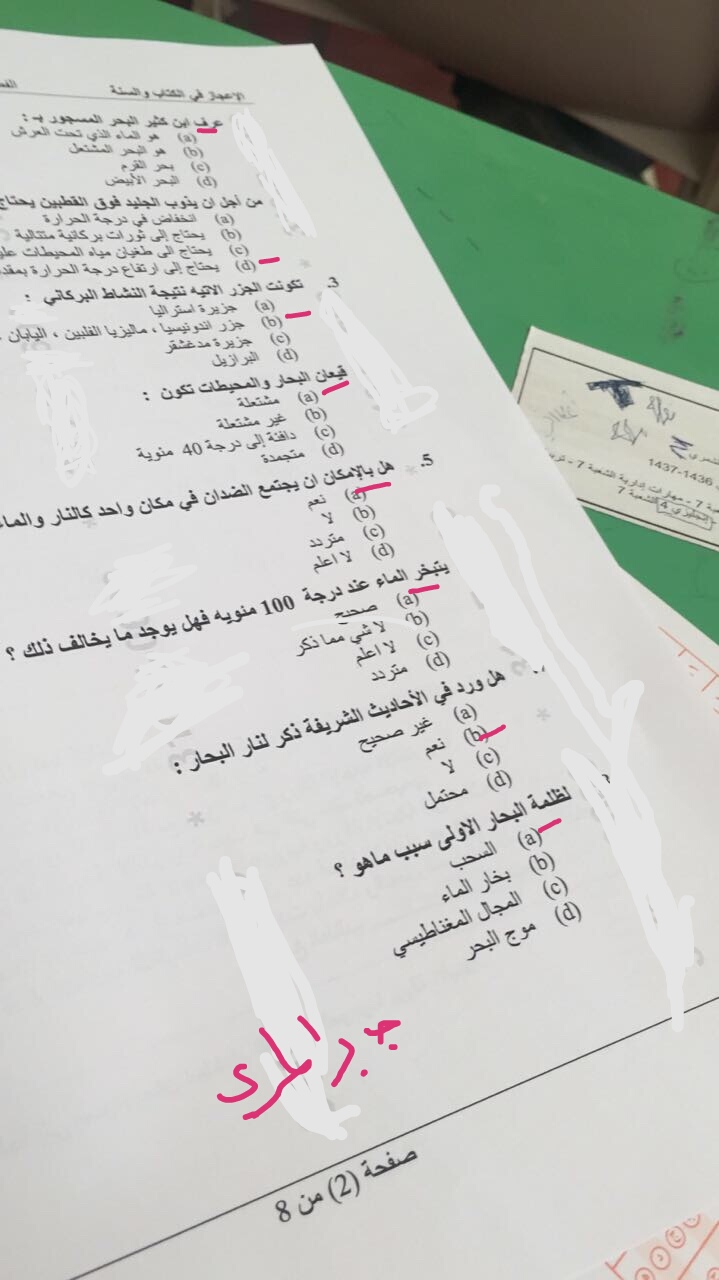 الاعجاز في الكتاب والسنة
عرف ابن كثير البحر المسجور بـ :
(a) هو الماء الذي تحت العرش
(b) هو البحر المشتعل
(c) بحر القرم
(d) البحر الأبيض
من أجل ان يذوب الجليد فوق القطبين يحتاج
(a) انخفاض في درجة الحرارة
(b) يحتاج إلى ثورات بركانية متتالية
(c) يحتاج الى طغيان مياه المحيطات
(d) يحتاج إلى ارتفاع درجة الحرارة
3. تكونت الجزر الاتيه نتيجة النشاط البركاني :
(a) جزيرة استراليا
(b) جزر اندونيسيا ، ماليزيا الفلبين ، اليابان ،
(c) جزيرة مدغشقر
(d) البرازيل
قيعان البحار والمحيطات تكون :
(a) مشتعلة
(b) غير مشتعلة
(c) دافئة إلى درجة 40 منوية
(d) متجمدة
5. هل بالإمكان ان يجتمع الضدان في مكان واحد كالنار والماء
(a) نعم
(b) لا
(c) متردد
(d) لا اعلم
يتبخر الماء عند درجة 100 منويه فهل يوجد ما يخالف ذلك ؟
(a) صحيح
(b) لا شي مما ذكر
(c) لا اعلم
(d) متردد
هل ورد في الأحاديث الشريفة ذكر لنار البحار :
(a) غير صحيح
(b) نعم
(c) لا
(d) محتمل
لظلمة البحار الاولى سبب ماهو ؟
(a) السحب
(b) بخار الماء
(c) المجال المغناطيسي
(d) موج البحر
صفحة (2) من 8
1436-1437
7 - مهارات ادارية الشعبة 7
إنجليزي 4 الشعبة 7